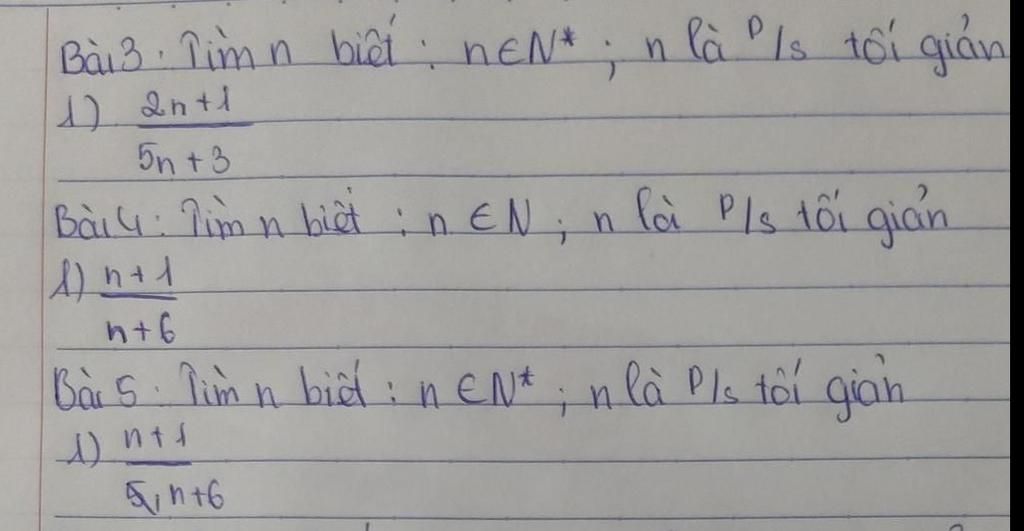 Bài 3: Tìm n biết: n∈N*; n là P/s tối giản
1) 2n+1
5n+3
Bài 4: Tìm n biết: n∈N; n là P/s tối giản
1) n+1
n+6
Bài 5: Tìm n biết: n∈N*; n là P/s tối giản
1) n+1
5, n+6